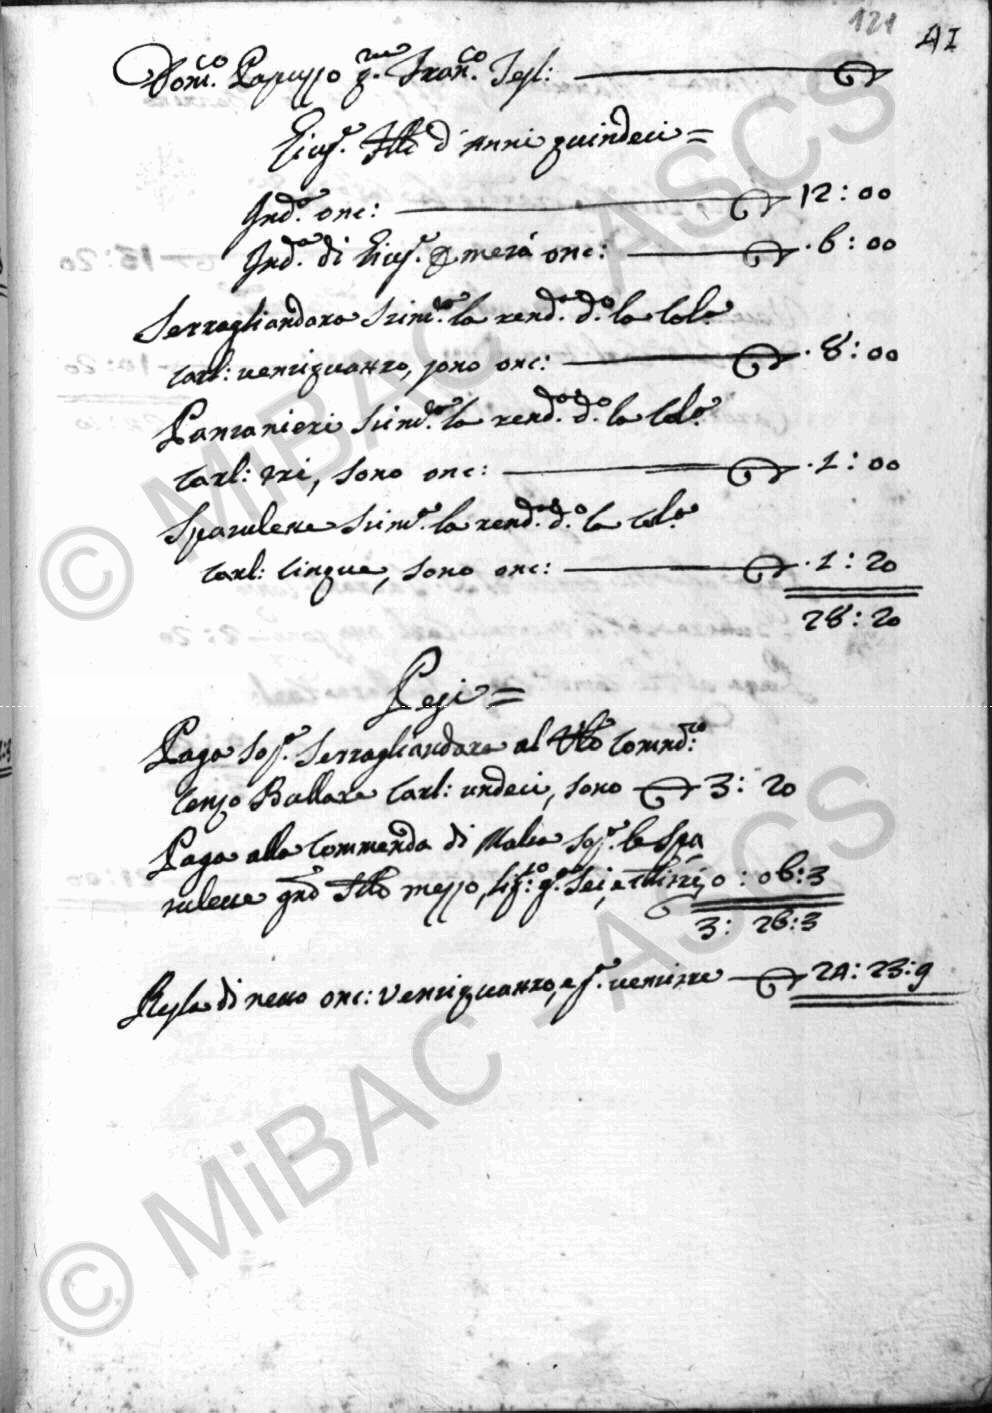 121 41
Dom.co Papuzzo q.m Fran.co Tesl:
Gius.e f͞llo d'Anni quindeci =
Ind.a onc: 12 : 00
Ind.a di Gius.e p metà onc: . 6 : 00
Serragliandara stim.a la rend.a d.o la Col.a
Carl: ventiquattro, sono onc: . 8 : 00
Panzanieri stim.a la rend.a d.o la Col.a
Carl: tri, sono onc: . 1 : 00
Sparulette stim.a la rend.a d.o la Col.a
Carl: Cinque, sono onc: . 1 : 20
28 : 20
Pesi =
Paga sop.a Serragliandara al Commd.co
Cenzo Ballare Carl: undeci, sono 3 : 20
Paga alla Commenda di Malta sop.a le Spa
rulette mezzo, sei, e 0 : 06 : 3
3 : 26 : 3
Resta di netto onc: Ventiquattro, e ventitre 24 : 23 : 9
© MiBAC - ASCS
© MiBAC - ASCS